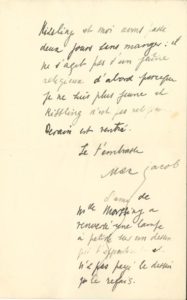 Kissling et moi avons passé
deux jours sans manger: il
ne s'agit pas d'un jeûne
religieux d'abord parceque
je ne suis plus jeune et
Kissling n'est pas religieux.
Derain est rentré.
Je t'embrasse
Max Jacob
L'ami de
Mme a
renversé une lampe
à pétrole sur un dessin
qui t'appartient et
n'a pas payé le dessin
je le refais.